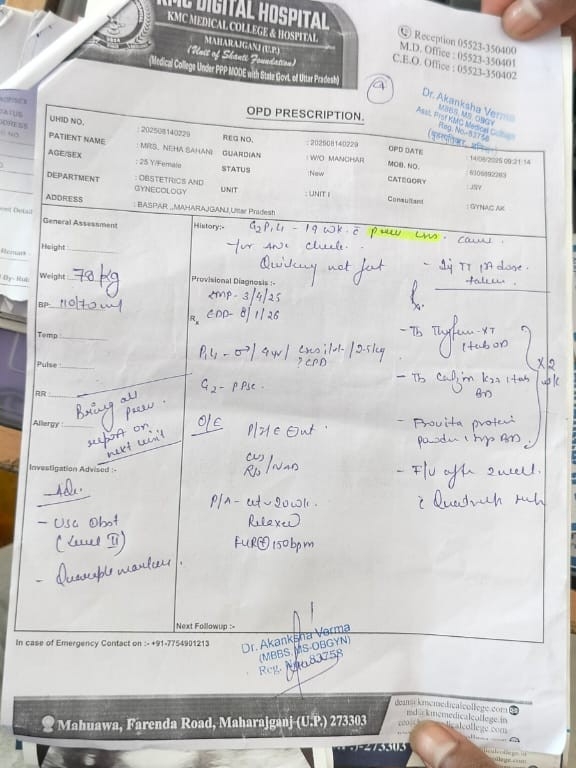 KMC DIGITAL HOSPITAL
KMC MEDICAL COLLEGE & HOSPITAL
MAHARAJGANJ (U.P.)
(Unit of Shanti Foundation)
(Medical College Under PPP MODE with State Govt. of Uttar Pradesh)
Reception 05523-350400
M.D. Office : 05523-350401
C.E.O. Office : 05523-350402
Dr. Akanksha Verma
MBBS, MS, OBGY
Asst. Prof KMC Medical College
Reg. No.-83758
OPD PRESCRIPTION.
UHID NO. : 202508140229 REG NO. : 202508140229 OPD DATE : 14/08/2025 09:21:14
PATIENT NAME : MRS. NEHA SAHANI GUARDIAN : W/O MANOHAR MOB. NO. : 6306892263
AGE/SEX : 25 Y/Female STATUS : New CATEGORY : JSY
DEPARTMENT : OBSTETRICS AND GYNECOLOGY UNIT : UNIT I Consultant : GYNAC AK
ADDRESS : BASPAR ,,MAHARAJGANJ,Uttar Pradesh
General Assessment
Height:
Weight: 78 kg
BP- 110/70
Temp:
Pulse:
RR:
Bring all
prev
report on
next visit
Allergy:
Investigation Advised :-
Adv.
- USG Obst
(Level II)
- Quadruple marker
History:- G2P1L1 - 19 wk c prev LSCS. came
for ANC check.
Quickening not felt
- Inj TT 1st dose
taken
Provisional Diagnosis :-
LMP- 3/4/25
Rx EDD- 8/1/26
P1L1 - ♂/ 4 yr/ LSCS i/v/o /2.5 kg
? CPD
G2- PPSC
O/E P/I/C
CVS
RS /NAD
P/A- ut ~ 20 wk.
Relaxed
FHR⊕ 150 bpm
Rx
- Tb 1 tab OD
- Tb 1 tab BD
- Provita protein
powder BD
x 2 wk
- F/U after 2 week
c Quadruple
Next Followup :-
In case of Emergency Contact on :- +91-7754901213
Dr. Akanksha Verma
(MBBS, MS-OBGYN)
Reg. No. 83758
Mahuawa, Farenda Road, Maharajganj (U.P.) 273303
dean@kmcmedicalcollege.com
md@kmcmedicalcollege.in
ceo@kmcmedicalcollege.in